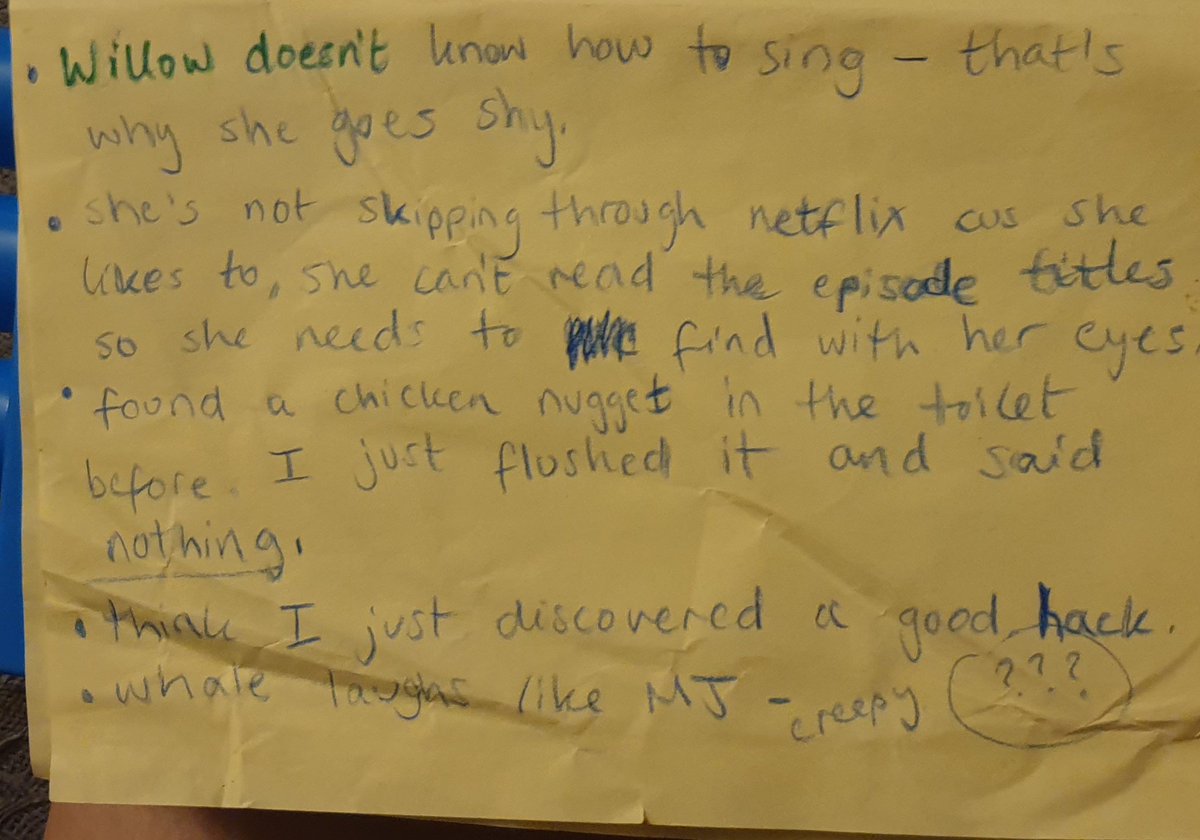 • Willow doesn't know how to sing – that's
why she goes shy.
• she's not skipping through netflix cus she
likes to, she can't read the episode titles
so she needs to find with her eyes.
• found a chicken nugget in the toilet
before. I just flushed it and said
nothing.
• think I just discovered a good hack.
• whale laughs like MJ - creepy ???